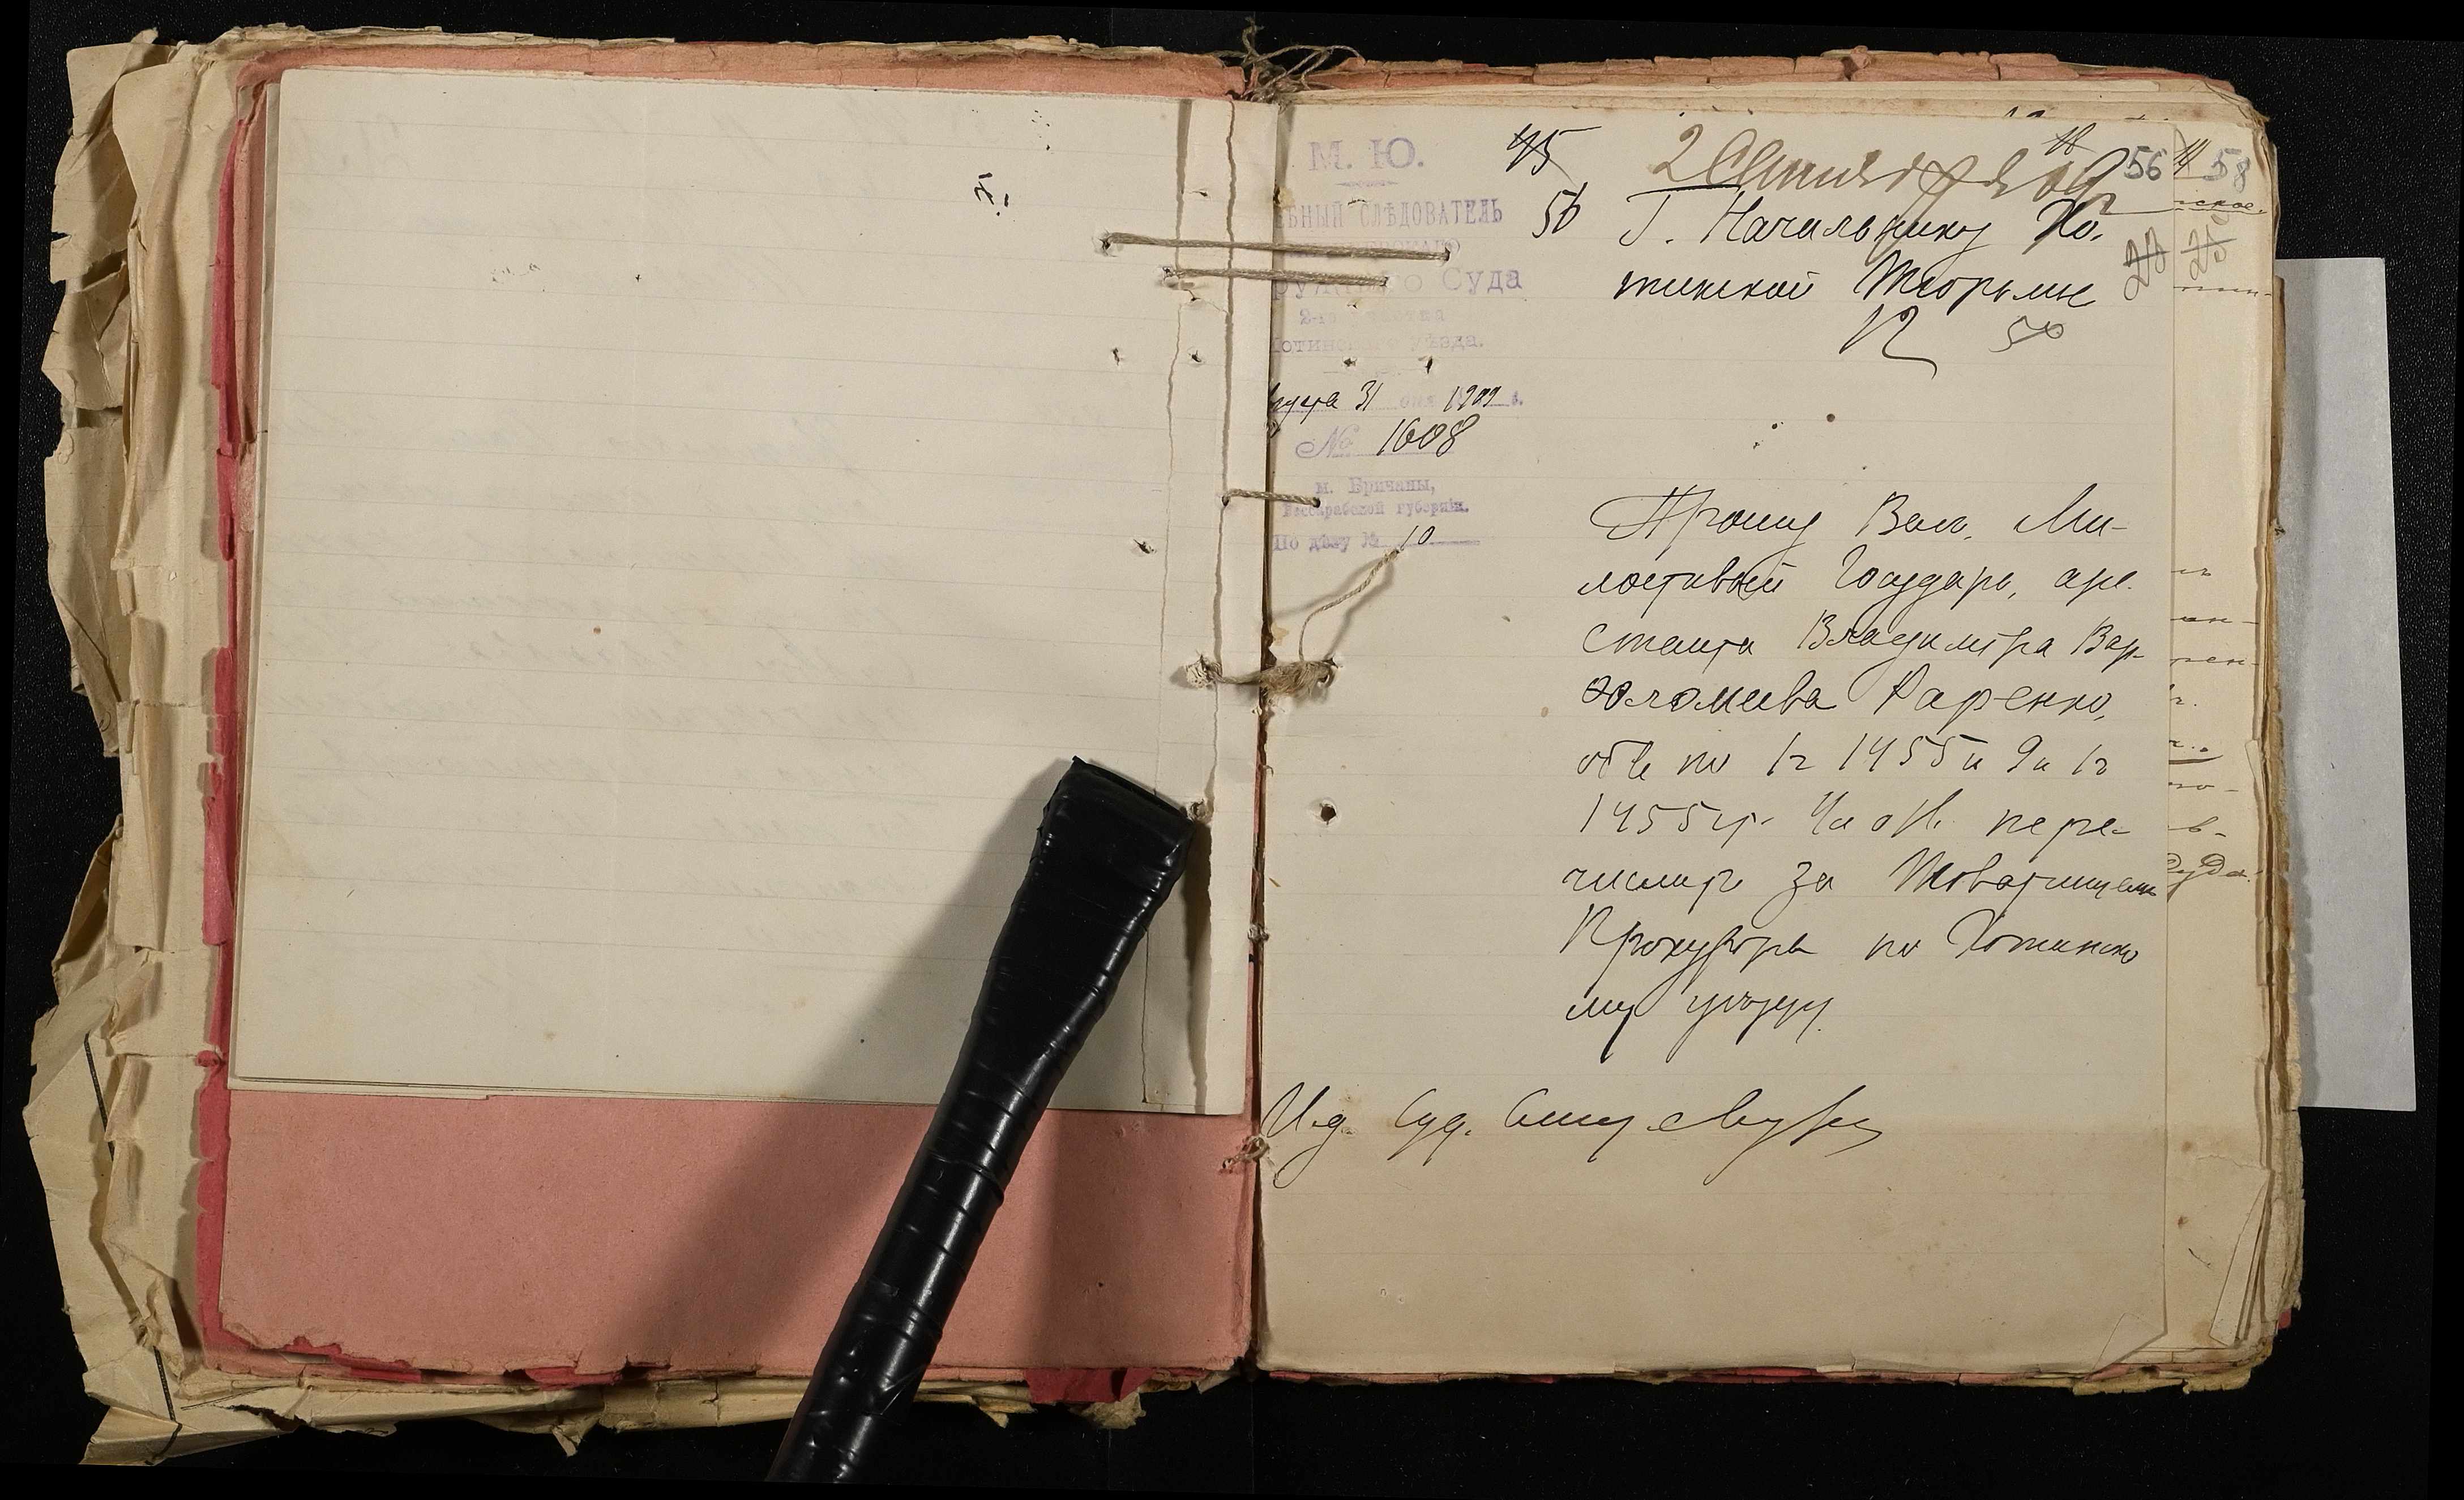 М. Ю.
БНЫЙ СЛѢДОВАТЕЛЬ
Суда
2-го участка
Хотинскаго уѣзда.
густа 31 дня 1909 г.
№ 1608
м. Бричаны,
Бессарабской губерніи.
По дѣлу № 10
45
50
2 Сентября 09
18
56
58
Г. Начальнику Хо-
тинской Тюрьмы
23
25
50
Прошу Васъ, Ми-
лостивый Государь, аре-
станта Владиміра Вар-
ѳоломеева
обв по 1 ч 1455 и 9 и 1 ч
1455 ст. пере-
числить за Товарищемъ
Прокурора по Хотинско
му уѣзду.
И.д. Суд. Слѣд.